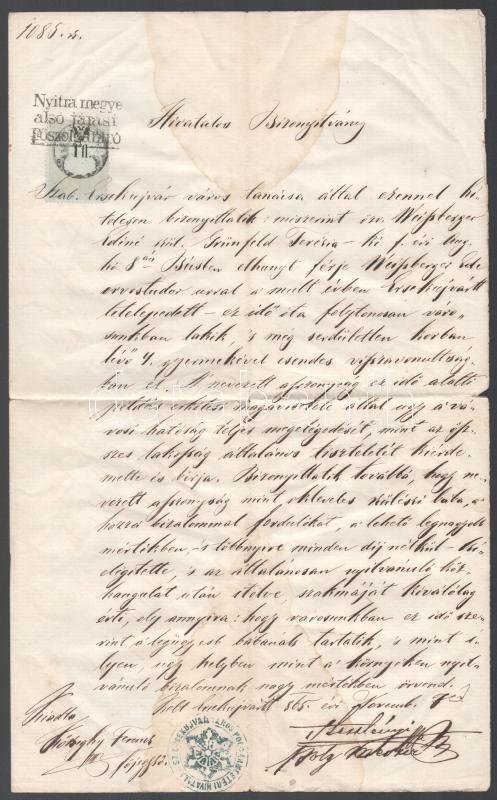 1085. sz.
Nyitra megye
alsó járási
Főszolgabíró
1 Fl.
Hivatalos Bizonyitvány
Szab. Érsekujvár város tanácsa által ezennel hi-
telesen bizonyittatik: miszerint özv. Weißberger
Edéné szül. Grünfeld Terézia – ki f. évi Aug.
hó 8-án Bécsben elhunyt férje Weißberger Ede
orvostudor urral a mult évben Érsekujvártt
letelepedett – ez idő óta folytonosan váro-
sunkban lakik, 's még serdületlen korban
lévő 4 gyermekével csendes visszavonultság-
ban él. A nevezett asszonyság ez idő alatti
példás erkölcsi magaviselete által ugy a vá-
rosi hatóság teljes megelégedését, mint az ösz-
szes lakosság általános tiszteletét kiérde-
melte és birja. Bizonyittatik továbbá, hogy ne-
vezett asszonyság mint okleveles szülésznő, a
hozzá bizalommal fordulókat, a lehető legnagyobb
mértékben, 's többnyire minden dij nélkül ki-
elégitette, 's az általánosan nyilvánuló köz-
hangulat után itélve, szakmáját kiválólag
érti, oly annyira: hogy városunkban ez idő sze-
rint a legügyesb bábának tartatik, 's mint i-
lyen, ugy helyben mint a környéken nyil-
vánuló bizalomnak nagy mértékben örvend.
Kelt Érsekujvártt 865 évi Novemb.
Kiadta
Ferencz
főjegyző